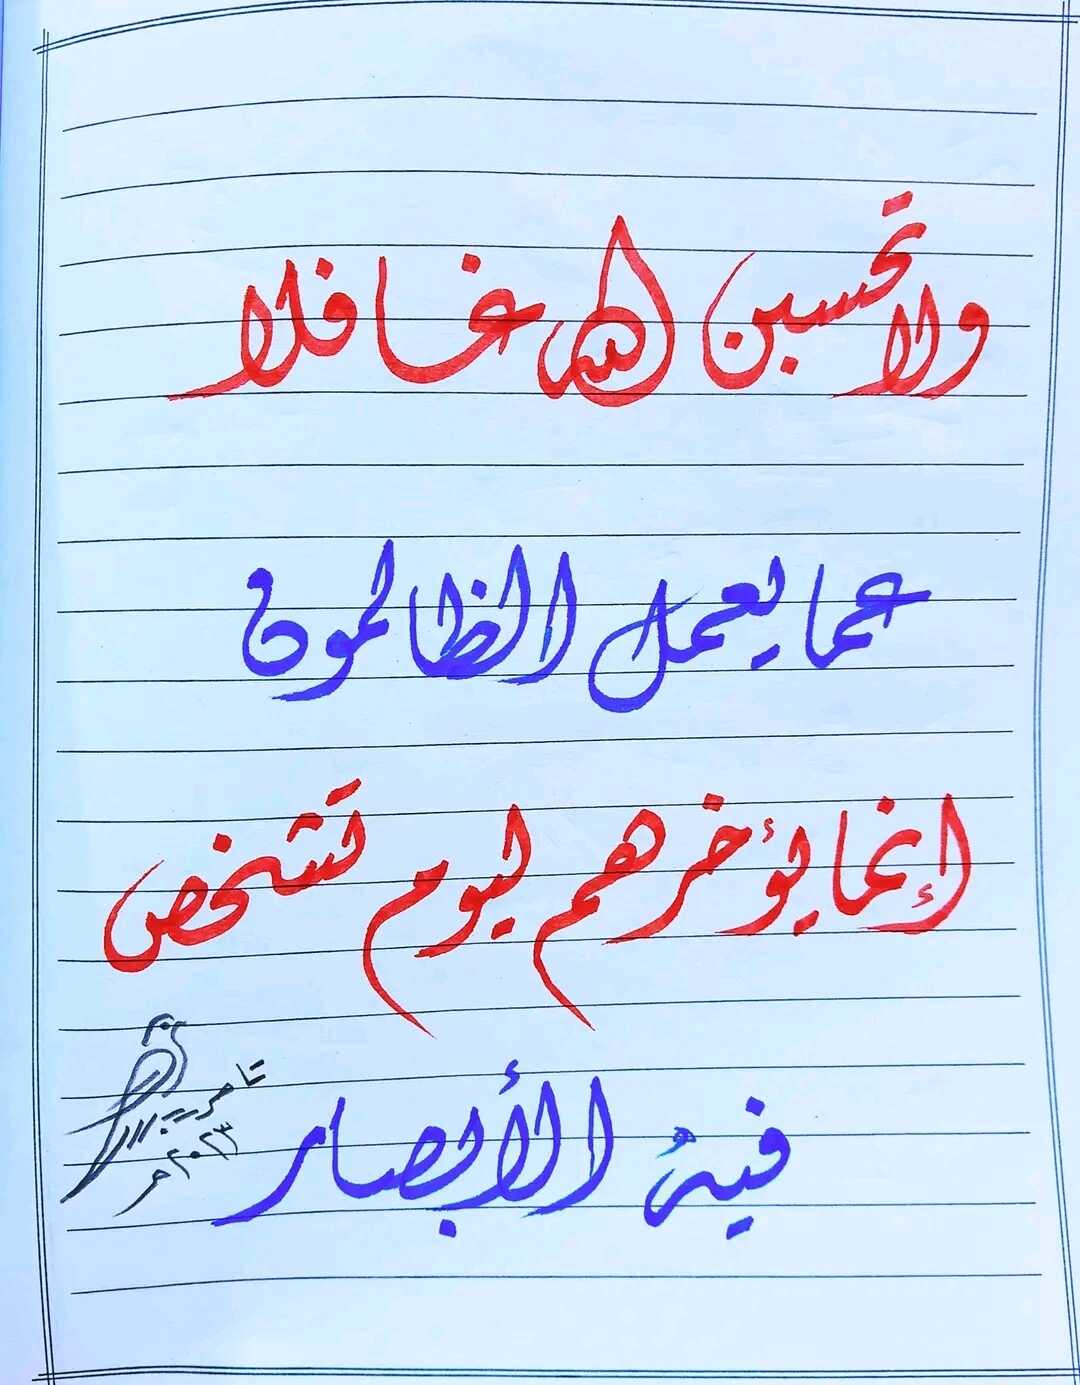 ولا تحسبن الله غافلا
عما يعمل الظالمون
إنما يؤخرهم ليوم تشخص
فيهُ الأبصار
تامر
٢٠٢٣م